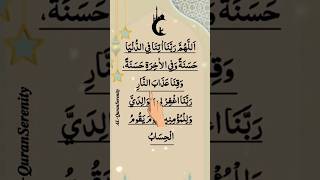 اَللّٰهُمَّ رَبَّنَا اٰتِنَا فِي الدُّنْيَا
حَسَنَةً وَّفِي الْاٰخِرَةِ حَسَنَةً،
وَقِنَا عَذَابَ النَّارِ
رَبَّنَا اغْفِرْ لِيْ وَالِدَيَّ
وَلِلْمُؤْمِنِيْنَ يَقُوْمُ
الْحِسَابُ
Al-QuranSerenity